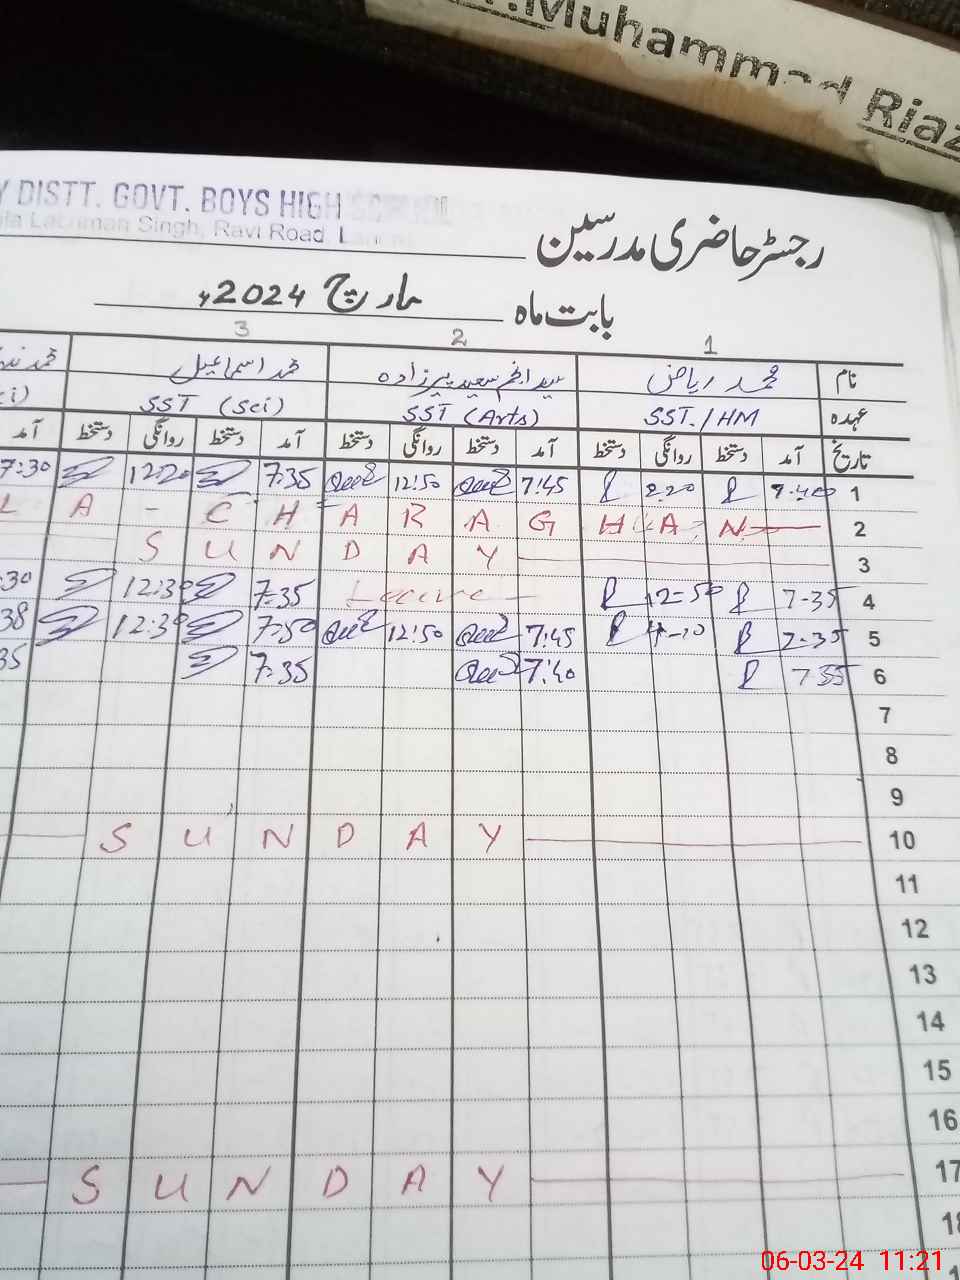 .Muhammad Riaz
Y DISTT. GOVT. BOYS HIGH SCHOOL
Singh, Ravi Road, L
رجسٹر حاضری مدرسین
بابت ماہ مارچ 2024ء
3 2 1
نام محمد ریاض سید انجم سعید پیرزادہ محمد اسماعیل محمد
عہدہ SST./HM SST (Arts) SST (Sci) ci)
تاریخ آمد دستخط روانگی دستخط آمد دستخط روانگی دستخط آمد دستخط روانگی دستخط آمد
1 7-40 2-20 7:45 12:50 7:35 12:20 7:30
2 LA - CHARAGHAN
3 SUNDAY
4 7-35 12-50 Leave 7:35 12:30 :30
5 7-35 7:45 12:50 7:50 12:30 38
6 7 35 7:40 7:35 35
7
8
9
10 SUNDAY
11
12
13
14
15
16
17 SUNDAY
18
06-03-24 11:21